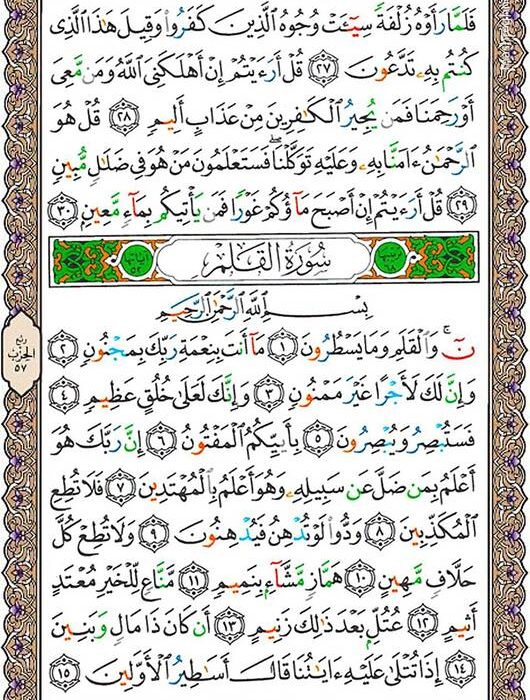 فَلَمَّا رَأَوْهُ زُلْفَةً سِيٓـَٔتْ وُجُوهُ ٱلَّذِينَ كَفَرُوا۟ وَقِيلَ هَٰذَا ٱلَّذِى
كُنتُم بِهِۦ تَدَّعُونَ ٢٧ قُلْ أَرَءَيْتُمْ إِنْ أَهْلَكَنِىَ ٱللَّهُ وَمَن مَّعِىَ
أَوْ رَحِمَنَا فَمَن يُجِيرُ ٱلْكَٰفِرِينَ مِنْ عَذَابٍ أَلِيمٍ ٢٨ قُلْ هُوَ
ٱلرَّحْمَٰنُ ءَامَنَّا بِهِۦ وَعَلَيْهِ تَوَكَّلْنَا ۖ فَسَتَعْلَمُونَ مَنْ هُوَ فِى ضَلَٰلٍ مُّبِينٍ
٢٩ قُلْ أَرَءَيْتُمْ إِنْ أَصْبَحَ مَآؤُكُمْ غَوْرًا فَمَن يَأْتِيكُم بِمَآءٍ مَّعِينٍۭ ٣٠
ترتيبها ٦٨ سُورَةُ القَلَمِ آياتها ٥٢
بِسْمِ ٱللَّهِ ٱلرَّحْمَٰنِ ٱلرَّحِيمِ
نٓ ۚ وَٱلْقَلَمِ وَمَا يَسْطُرُونَ ١ مَآ أَنتَ بِنِعْمَةِ رَبِّكَ بِمَجْنُونٍ ٢
وَإِنَّ لَكَ لَأَجْرًا غَيْرَ مَمْنُونٍ ٣ وَإِنَّكَ لَعَلَىٰ خُلُقٍ عَظِيمٍ ٤
فَسَتُبْصِرُ وَيُبْصِرُونَ ٥ بِأَييِّكُمُ ٱلْمَفْتُونُ ٦ إِنَّ رَبَّكَ هُوَ
أَعْلَمُ بِمَن ضَلَّ عَن سَبِيلِهِۦ وَهُوَ أَعْلَمُ بِٱلْمُهْتَدِينَ ٧ فَلَا تُطِعِ
ٱلْمُكَذِّبِينَ ٨ وَدُّوا۟ لَوْ تُدْهِنُ فَيُدْهِنُونَ ٩ وَلَا تُطِعْ كُلَّ
حَلَّافٍ مَّهِينٍ ١٠ هَمَّازٍ مَّشَّآءٍۭ بِنَمِيمٍ ١١ مَّنَّاعٍ لِّلْخَيْرِ مُعْتَدٍ
أَثِيمٍ ١٢ عُتُلٍّۭ بَعْدَ ذَٰلِكَ زَنِيمٍ ١٣ أَن كَانَ ذَا مَالٍ وَبَنِينَ
١٤ إِذَا تُتْلَىٰ عَلَيْهِ ءَايَٰتُنَا قَالَ أَسَٰطِيرُ ٱلْأَوَّلِينَ ١٥
ربع
الحزب
٥٧